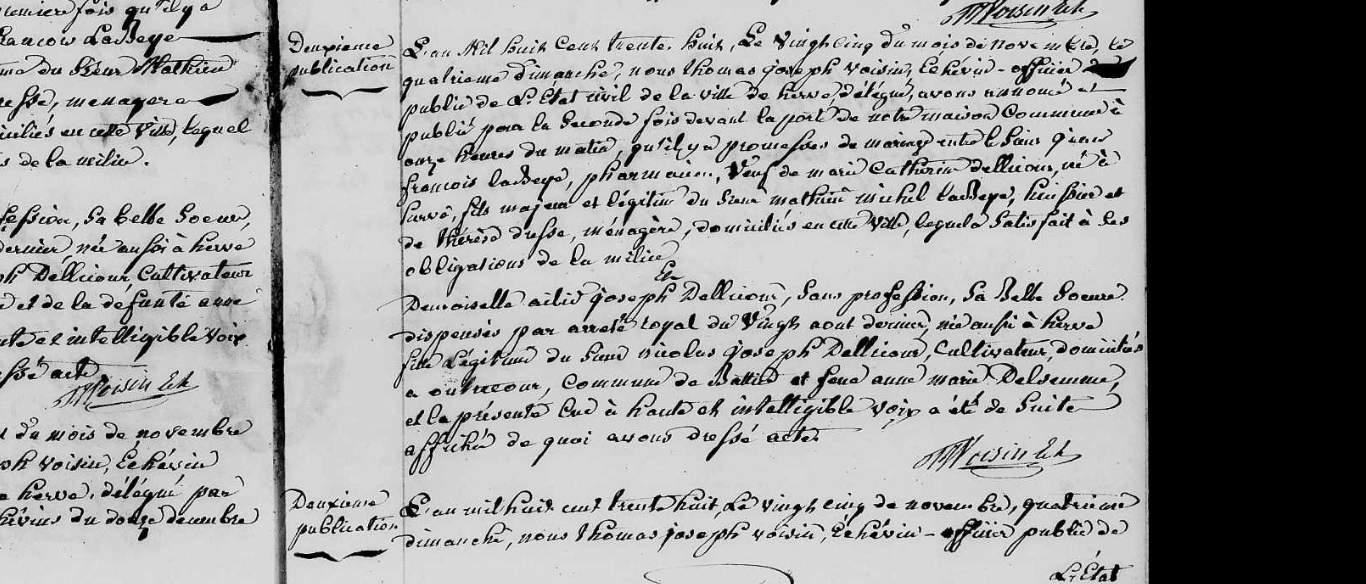 remiere fois qu'il y a
rancois Ladbeye
me du Sieur Mathieu
resse, menagere
iciliés en cette Ville, lequel
s de la milice.
fession, Sa belle Soeur,
dernier, née aussi à herve
ph Dellicour, Cultivateur
et de la défunte anne
te et intelligible voix
ssé acte
Voisin Ech
du mois de novembre
ph Voisin, Echévin
herve, délégué par
hévins du douze décembre
Voisin Ech
Deuxieme
publication
L'an Mil huit Cent trente huit, Le Vingt cinq du mois de novembre, le
quatrieme dimanche, nous thomas joseph Voisin, Echévin - officier
public de L'Etat civil de la ville de herve, délégué, avons annoncé et
publié pour la Seconde fois devant la porte de notre maison Commune à
onze heures du matin, qu'il y a promesses de mariage entre le Sieur
francois Ladbeye, pharmacien, Veuf de marie Catherine dellicour, né à
herve, fils majeur et légitime du Sieur mathieu michel Ladbeye, huissier et
de thérèse dresse, ménagère, domiciliés en cette Ville, lequel a Satisfait à Ses
obligations de la milice
Et
Demoiselle joseph Dellicour, Sans profession, Sa Belle Soeur
dispensés par arreté royal du Vingt aout dernier, née aussi à herve
fille Légitime du Sieur nicolas joseph Dellicour, Cultivateur, domicilié
a outrecour, Commune de Battice et feue anne marie Delsemme,
et la présente Lue à haute et intelligible voix a été de Suite
affichée de quoi avons dressé acte.
Voisin Ech
Deuxieme
publication
L'an mil huit cent trente huit Le vingt cinq de novembre, quatrieme
dimanche, nous thomas joseph Voisin, Echévin - officier public de
L'Etat